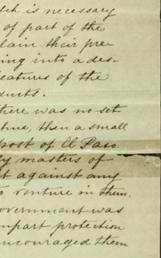 ich is necessary
of part of the
laim their pre
ing into a des-
icatures of the
ducts.
there was no set
hue, then a small
post of El Paso
ty masters of
t against any
to venture in them.
overnment was
mpart protection
encouraged them